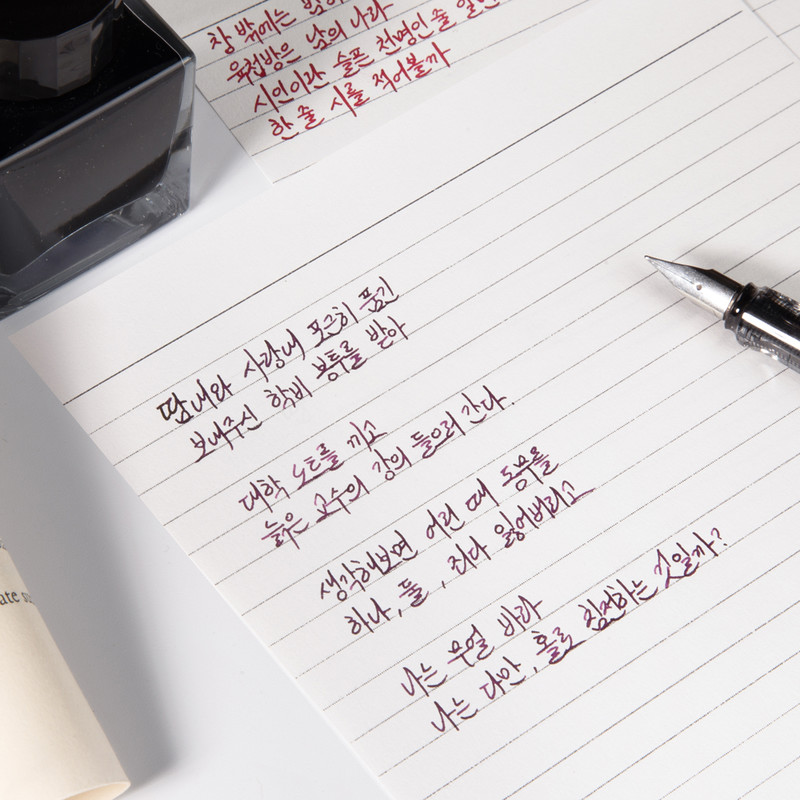 창 밖에는 밤
육첩방은 남의 나라
시인이란 슬픈 천명인 줄 알면
한 줄 시를 적어볼까
땀내와 사랑내 포근히 품긴
보내주신 학비 봉투를 받아
대학 노트를 끼고
늙은 교수의 강의 들으러 간다.
생각해보면 어린 때 동무를
하나, 둘, 죄다 잃어버리고
나는 무얼 바라
나는 다만, 홀로 침전하는 것일까?
ate